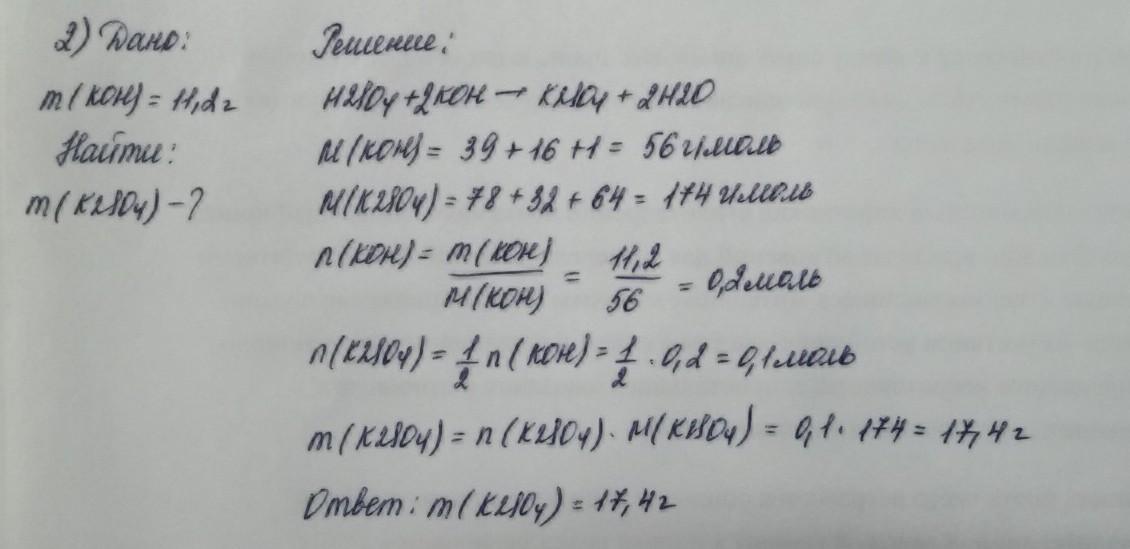 2) Дано:
m(KOH) = 11,2 г
Найти:
m(K2SO4) - ?
Решение:
H2SO4 + 2KOH → K2SO4 + 2H2O
M(KOH) = 39 + 16 + 1 = 56 г/моль
M(K2SO4) = 78 + 32 + 64 = 174 г/моль
n(KOH) = m(KOH)/M(KOH) = 11,2/56 = 0,2 моль
n(K2SO4) = 1/2 n(KOH) = 1/2 · 0,2 = 0,1 моль
m(K2SO4) = n(K2SO4) · M(K2SO4) = 0,1 · 174 = 17,4 г
Ответ: m(K2SO4) = 17,4 г